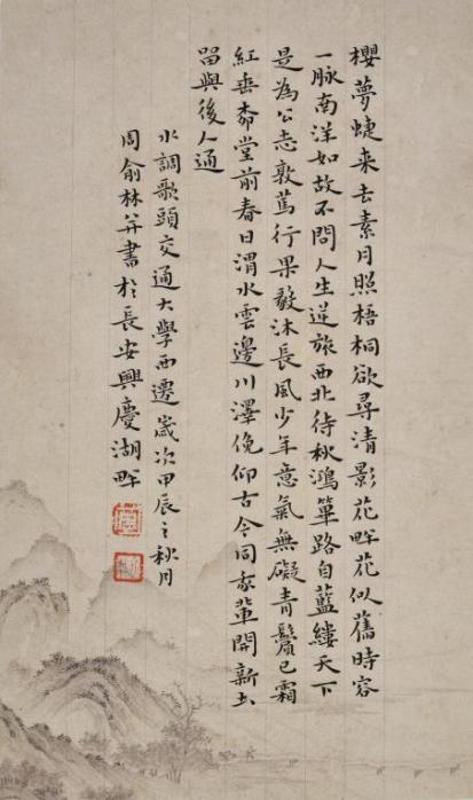 櫻夢蜨来去素月照梧桐欲尋清影花畔花似舊時容
一脉南洋如故不問人生逆旅西北待秋鴻篳路自藍縷天下
是為公志敦篤行果毅沐長風少年意氣無礙青鬢已霜
紅垂堂前春日渭水雲邊川澤俛仰古今同我輩開新圡
畱與後人通
水調歌頭交通大學西遷歲次甲辰之秋月
周俞林并書於長安興慶湖畔